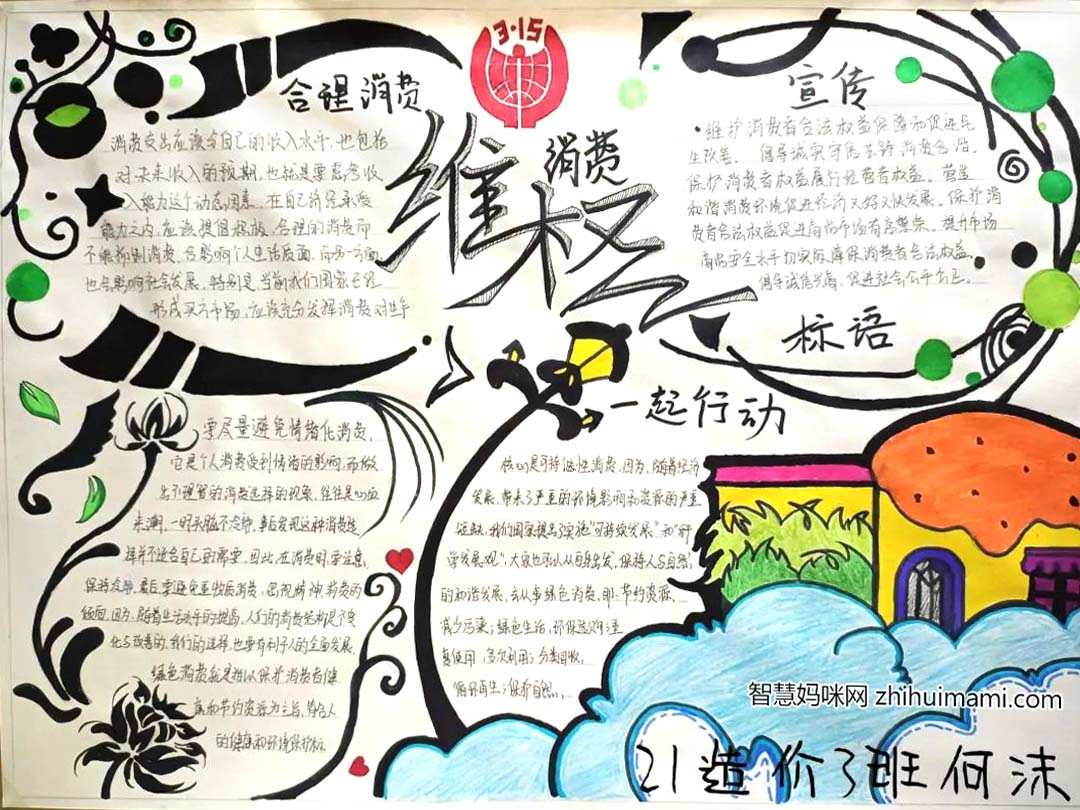 3·15
合理消费
消费支出应该与自己的收入水平,也包括
对未来收入的预期,也就是要考虑收
入能力这个动态因素。在自己经济承受
能力之内,应该提倡积极、合理的消费而
不能抑制消费,会影响个人生活质量,而另一方面
也会影响社会发展。特别是当前我们国家已经
形成买方市场,应该充分发挥消费对生产
消费
维权
宣传
·维护消费者合法权益保障和促进民
生改善。倡导诚实守信
保护消费者权益履行经营者权益。营造
和谐消费环境促进经济又好又快发展。保护消
费者合法权益促进商品市场有序繁荣。提升市场
商品安全水平切实保障消费者合法权益。
倡导诚信兴商,促进社会公平公正。
标语
要尽量避免情绪化消费,
它是个人消费受到情绪的影响,而做
出不理智的消费选择的现象,往往是心血
来潮,一时头脑不冷静,事后发现这种消费选
择并不适合自己的需要,因此,在消费时要注意,
保持冷静,最后要避免重物质消费,忽视精神消费的
倾向,因为,随着生活水平的提高,人们的消费结构是不断
化与改善的,我们的选择,也要有利于人的全面发展。
绿色消费就是指以保护消费者健
康和节约资源为主旨,符合人
的健康和环境保护标
一起行动
核心是可持续性消费,因为,随着经济
发展,带来了严重的环境影响和资源的严重
短缺,我们国家提出实施“可持续发展”和“科
学发展观”,大家也可以从自身出发,保持人与自然
的和谐发展,去从事绿色消费,即:节约资源,
减少污染;绿色生活,环保选购;重
复使用,多次利用;分类回收,
循环再生;保护自然,
智慧妈咪网 zhihuimami.com
21造价3班何沫